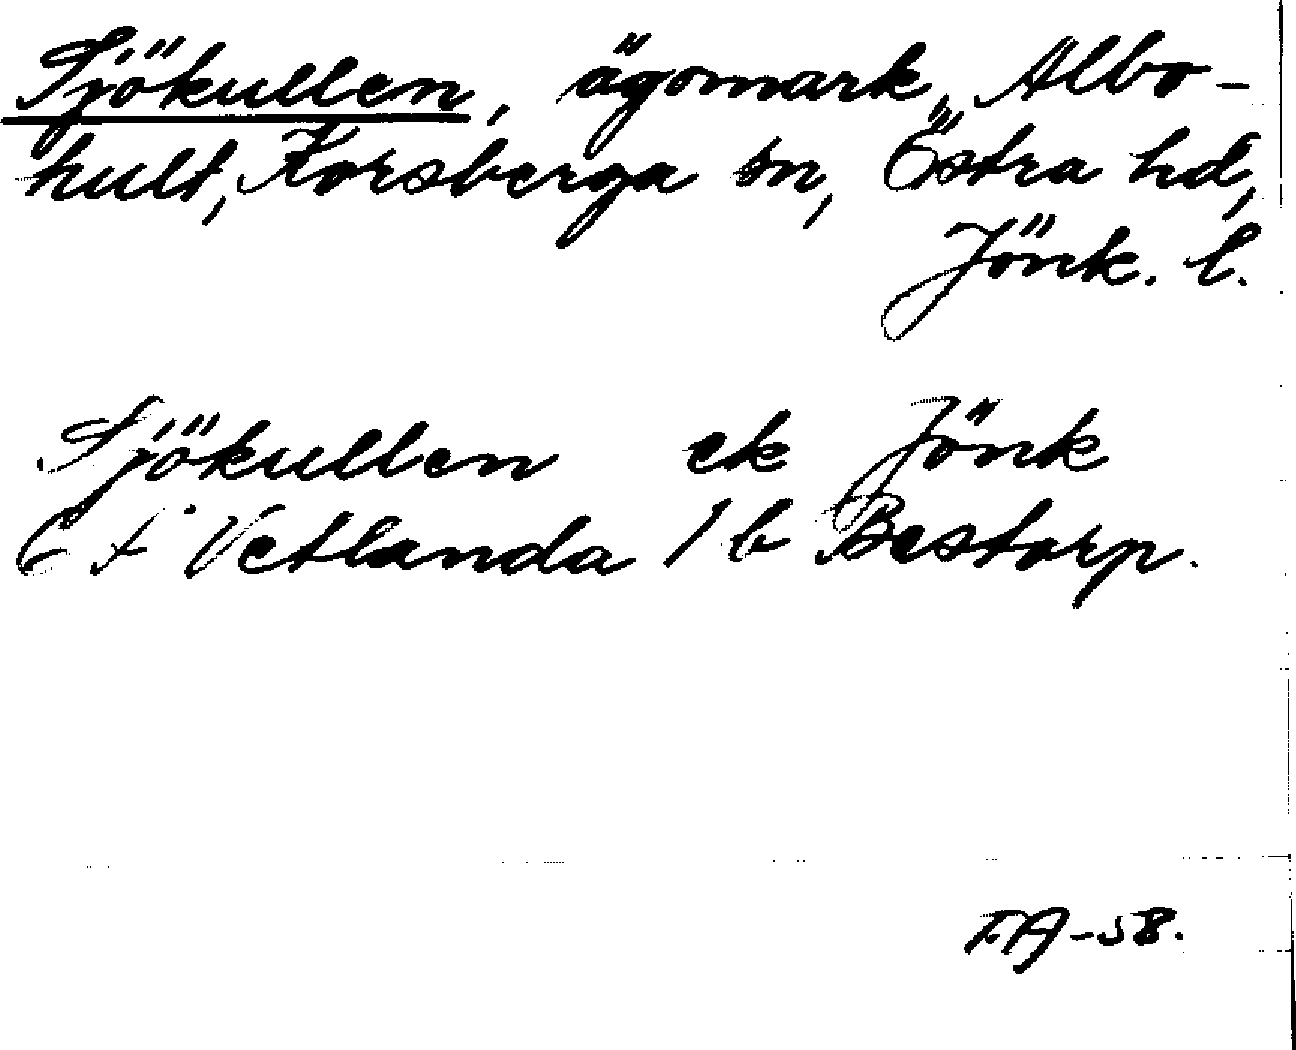 Sjökullen, ägomark, Albo-
hult, Korsberga sn, Östra hd,
Jönk. l.
Sjökullen ek Jönk
6 f Vetlanda 1 b Bestorp.
FA-58.